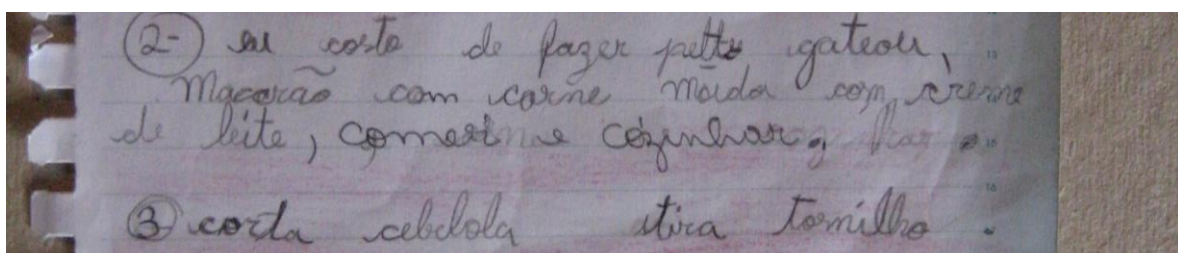 2- eu costo de fazer petit gateou,
Macarão com carne moida com creme
de leite, comer e cozinhar.
3- corta cebelola tira tomilho.